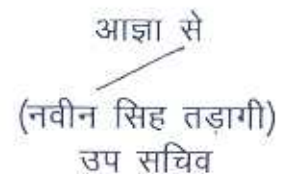 आज्ञा से
(नवीन सिह तड़ागी)
उप सचिव